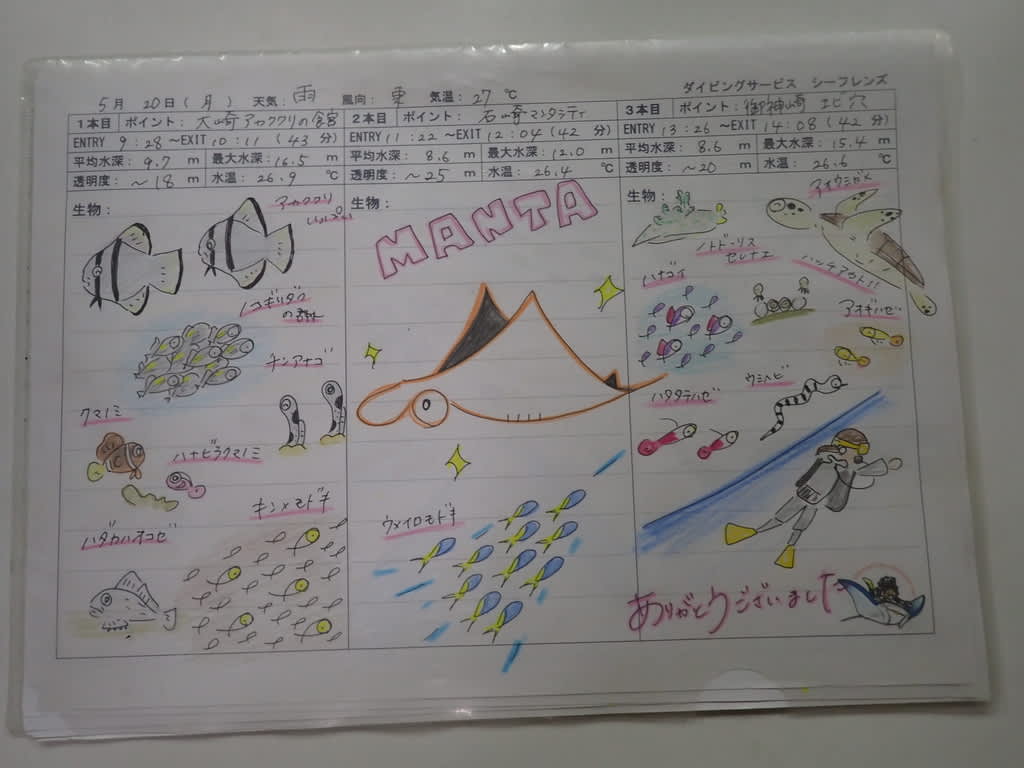 ダイビングサービス シーフレンズ
5月 20日(月) 天気: 雨 風向: 東 気温: 27 ℃
1本目 ポイント: 大崎アカククリの宮
ENTRY 9:28 ～EXIT 10:11 (43 分)
平均水深: 9.7 m 最大水深: 16.5 m
透明度: ～18 m 水温: 26.9 ℃
生物:
アカククリ
ノコギリダイ
の群れ
チンアナゴ
クマノミ
ハナビラクマノミ
キンメモドキ
ハダカハオコゼ
2本目 ポイント: 石崎マンタシティ
ENTRY 11:22 ～EXIT 12:04 (42 分)
平均水深: 8.6 m 最大水深: 12.0 m
透明度: ～25 m 水温: 26.4 ℃
生物:
MANTA
ウメイロモドキ
3本目 ポイント: 御神崎 北穴
ENTRY 13:26 ～EXIT 14:08 (42 分)
平均水深: 8.6 m 最大水深: 15.4 m
透明度: ～20 m 水温: 26.6 ℃
生物:
アオウミガメ
ノトドーリス
セレナエ
ハナゴイ
アオギハゼ
ウミヘビ
ハタタテハゼ
ありがとうございました